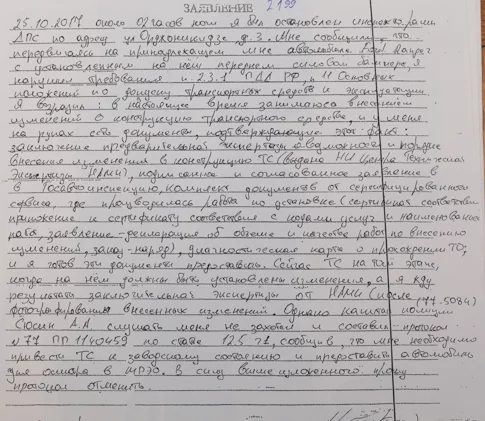 ЗАЯВЛЕНИЕ 2199
25.10.2017 около 02 часов ночи я был остановлен инспекторами
ДПС по адресу ул Орджоникидзе д.3. Мне сообщили, что
передвигаясь на принадлежащем мне автомобиле
с установленным на нём переднем силовом бампере, я
нарушаю требования п. 2.3.1 ПДД РФ, п 11 Основных
положений по допуску транспортных средств к эксплуатации.
Я возразил: в настоящее время занимаюсь внесением
изменений в конструкцию транспортного средства, и у меня
на руках есть документы, подтверждающие этот факт:
заключение предварительной экспертизы о возможности и порядке
внесения изменения в конструкцию ТС (выдано НИ Центра Техническая
Экспертиза НАМИ), подписанное и согласованное заявление в
в Госавтоинспекцию, комплект документов от сертифицированного
сервиса, где производилась работа по установке (сертификат соответствия
приложение к сертификату соответствия с кодами услуг и наименование
работ, заявление-декларация об объеме и качестве работ по внесению
изменений, заказ-наряд), диагностическая карта о прохождении ТО,
и я готов эти документы предоставить. Сейчас ТС на том этапе,
когда на нём должны быть установлены изменения, а я жду
результаты заключительной экспертизы от НАМИ (после (77-5084)
фотографирования внесенных изменений. Однако капитан полиции
Сюсин А.А. слушать меня не захотел и составил протокол
№77 ПР 1140459 по статье 12.5 ч1, сообщив, что мне необходимо
привести ТС к заводскому состоянию и предоставить автомобиль
для осмотра в МРЭО. В силу выше изложенного прошу
протокол отменить.